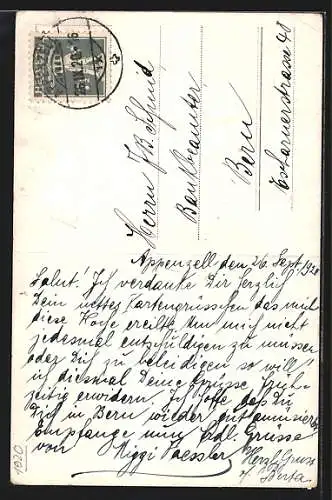 HELVETIA
26. IX. 20.
Herrn J B Schmid
Bankbeamter,
Bern
Tscharnerstrasse 48
Appenzell den 26 Sept. 1920
Salut! Ich verdanke Dir herzlich
Dein nettes Kartengrüsschen das mich
diese Woche ereilte. Um mich nicht
jedesmal entschuldigen zu müssen
oder Dich zu beleidigen so will
ich diesmal Deine Grüsse früh-
zeitig erwidern. Ich hoffe dass Du
Dich in Bern wieder gut amüsierst
Empfange nun frdl. Grüsse
von
Herzl. Gruss
v. Berta
1920